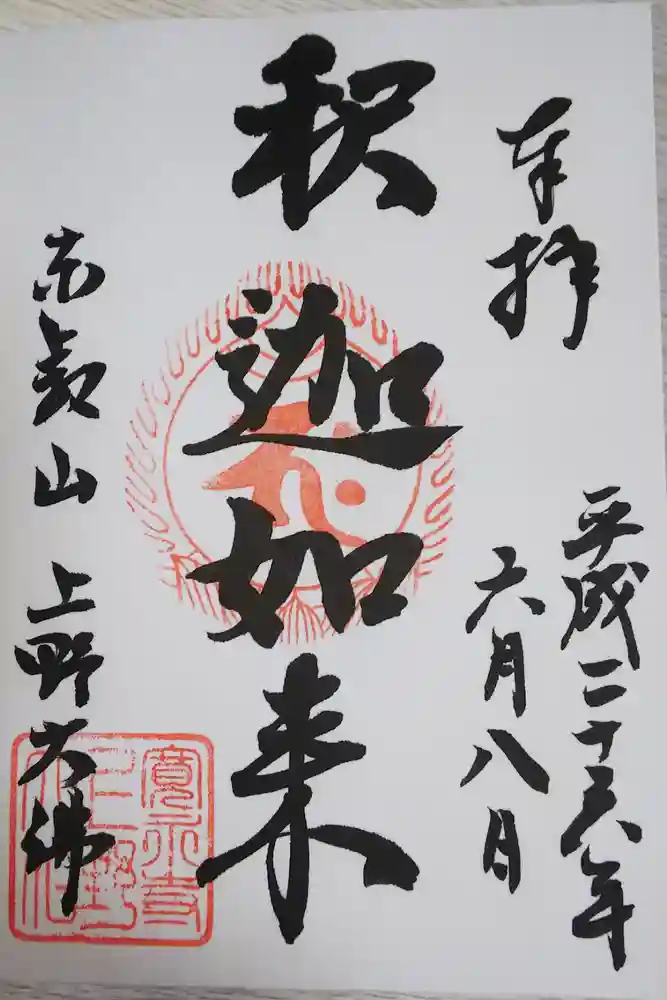 奉拝
平成二十六年
六月八日
釈迦如来
東叡山 上野大佛
寛永寺